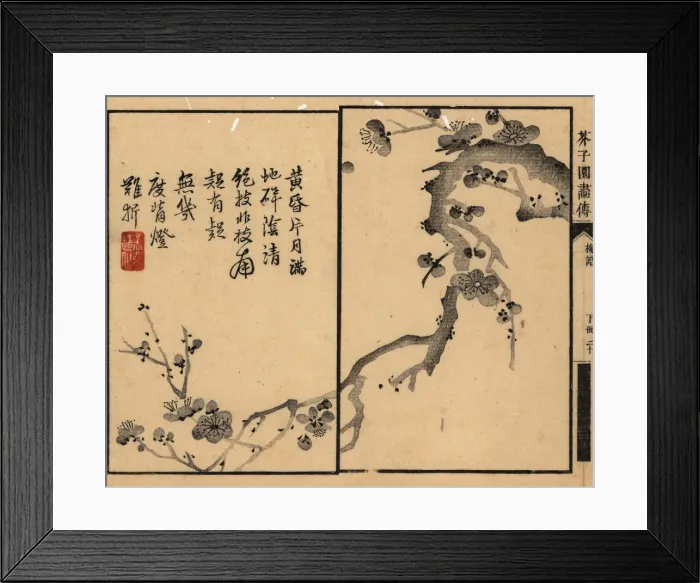 芥子園畫傳
梅譜
黃昏片月滿
地碎陰清
絕枝北枝南
疑有疑
無幾
度背燈
難折